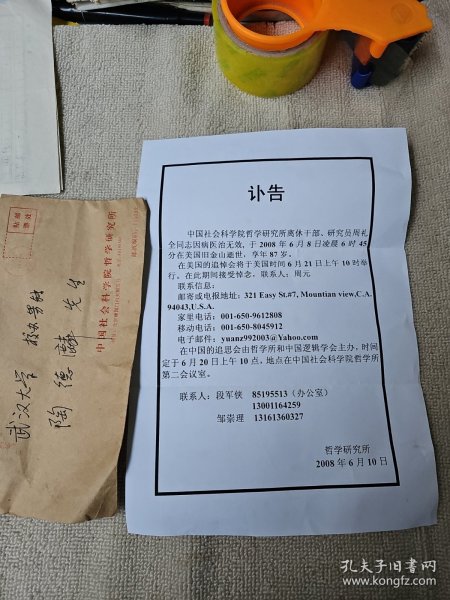 讣告
中国社会科学院哲学研究所离休干部、研究员周礼
全同志因病医治无效，于 2008 年 6 月 8 日凌晨 6 时 45
分在美国旧金山逝世，享年 87 岁。
在美国的追悼会将于美国时间 6 月 21 日上午 10 时举
行。在此期间接受悼念，联系人：周元
联系信息：
邮寄或电报地址：321 Easy St.#7, Mountian view,C.A.
94043,U.S.A.
家里电话：001-650-9612808
移动电话：001-650-8045912
电子邮件：yuanz992003@Yahoo.com
在中国的追思会由哲学所和中国逻辑学会主办，时间
定于 6 月 20 日上午 10 点，地点在中国社会科学院哲学所
第二会议室。
联系人：段军侠 85195513（办公室）
13001164259
邹崇理 13161360327
哲学研究所
2008 年 6 月 10 日
中国社会科学院哲学研究所
武汉大学
陶德麟 先生
孔夫子旧书网
www.kongfz.com